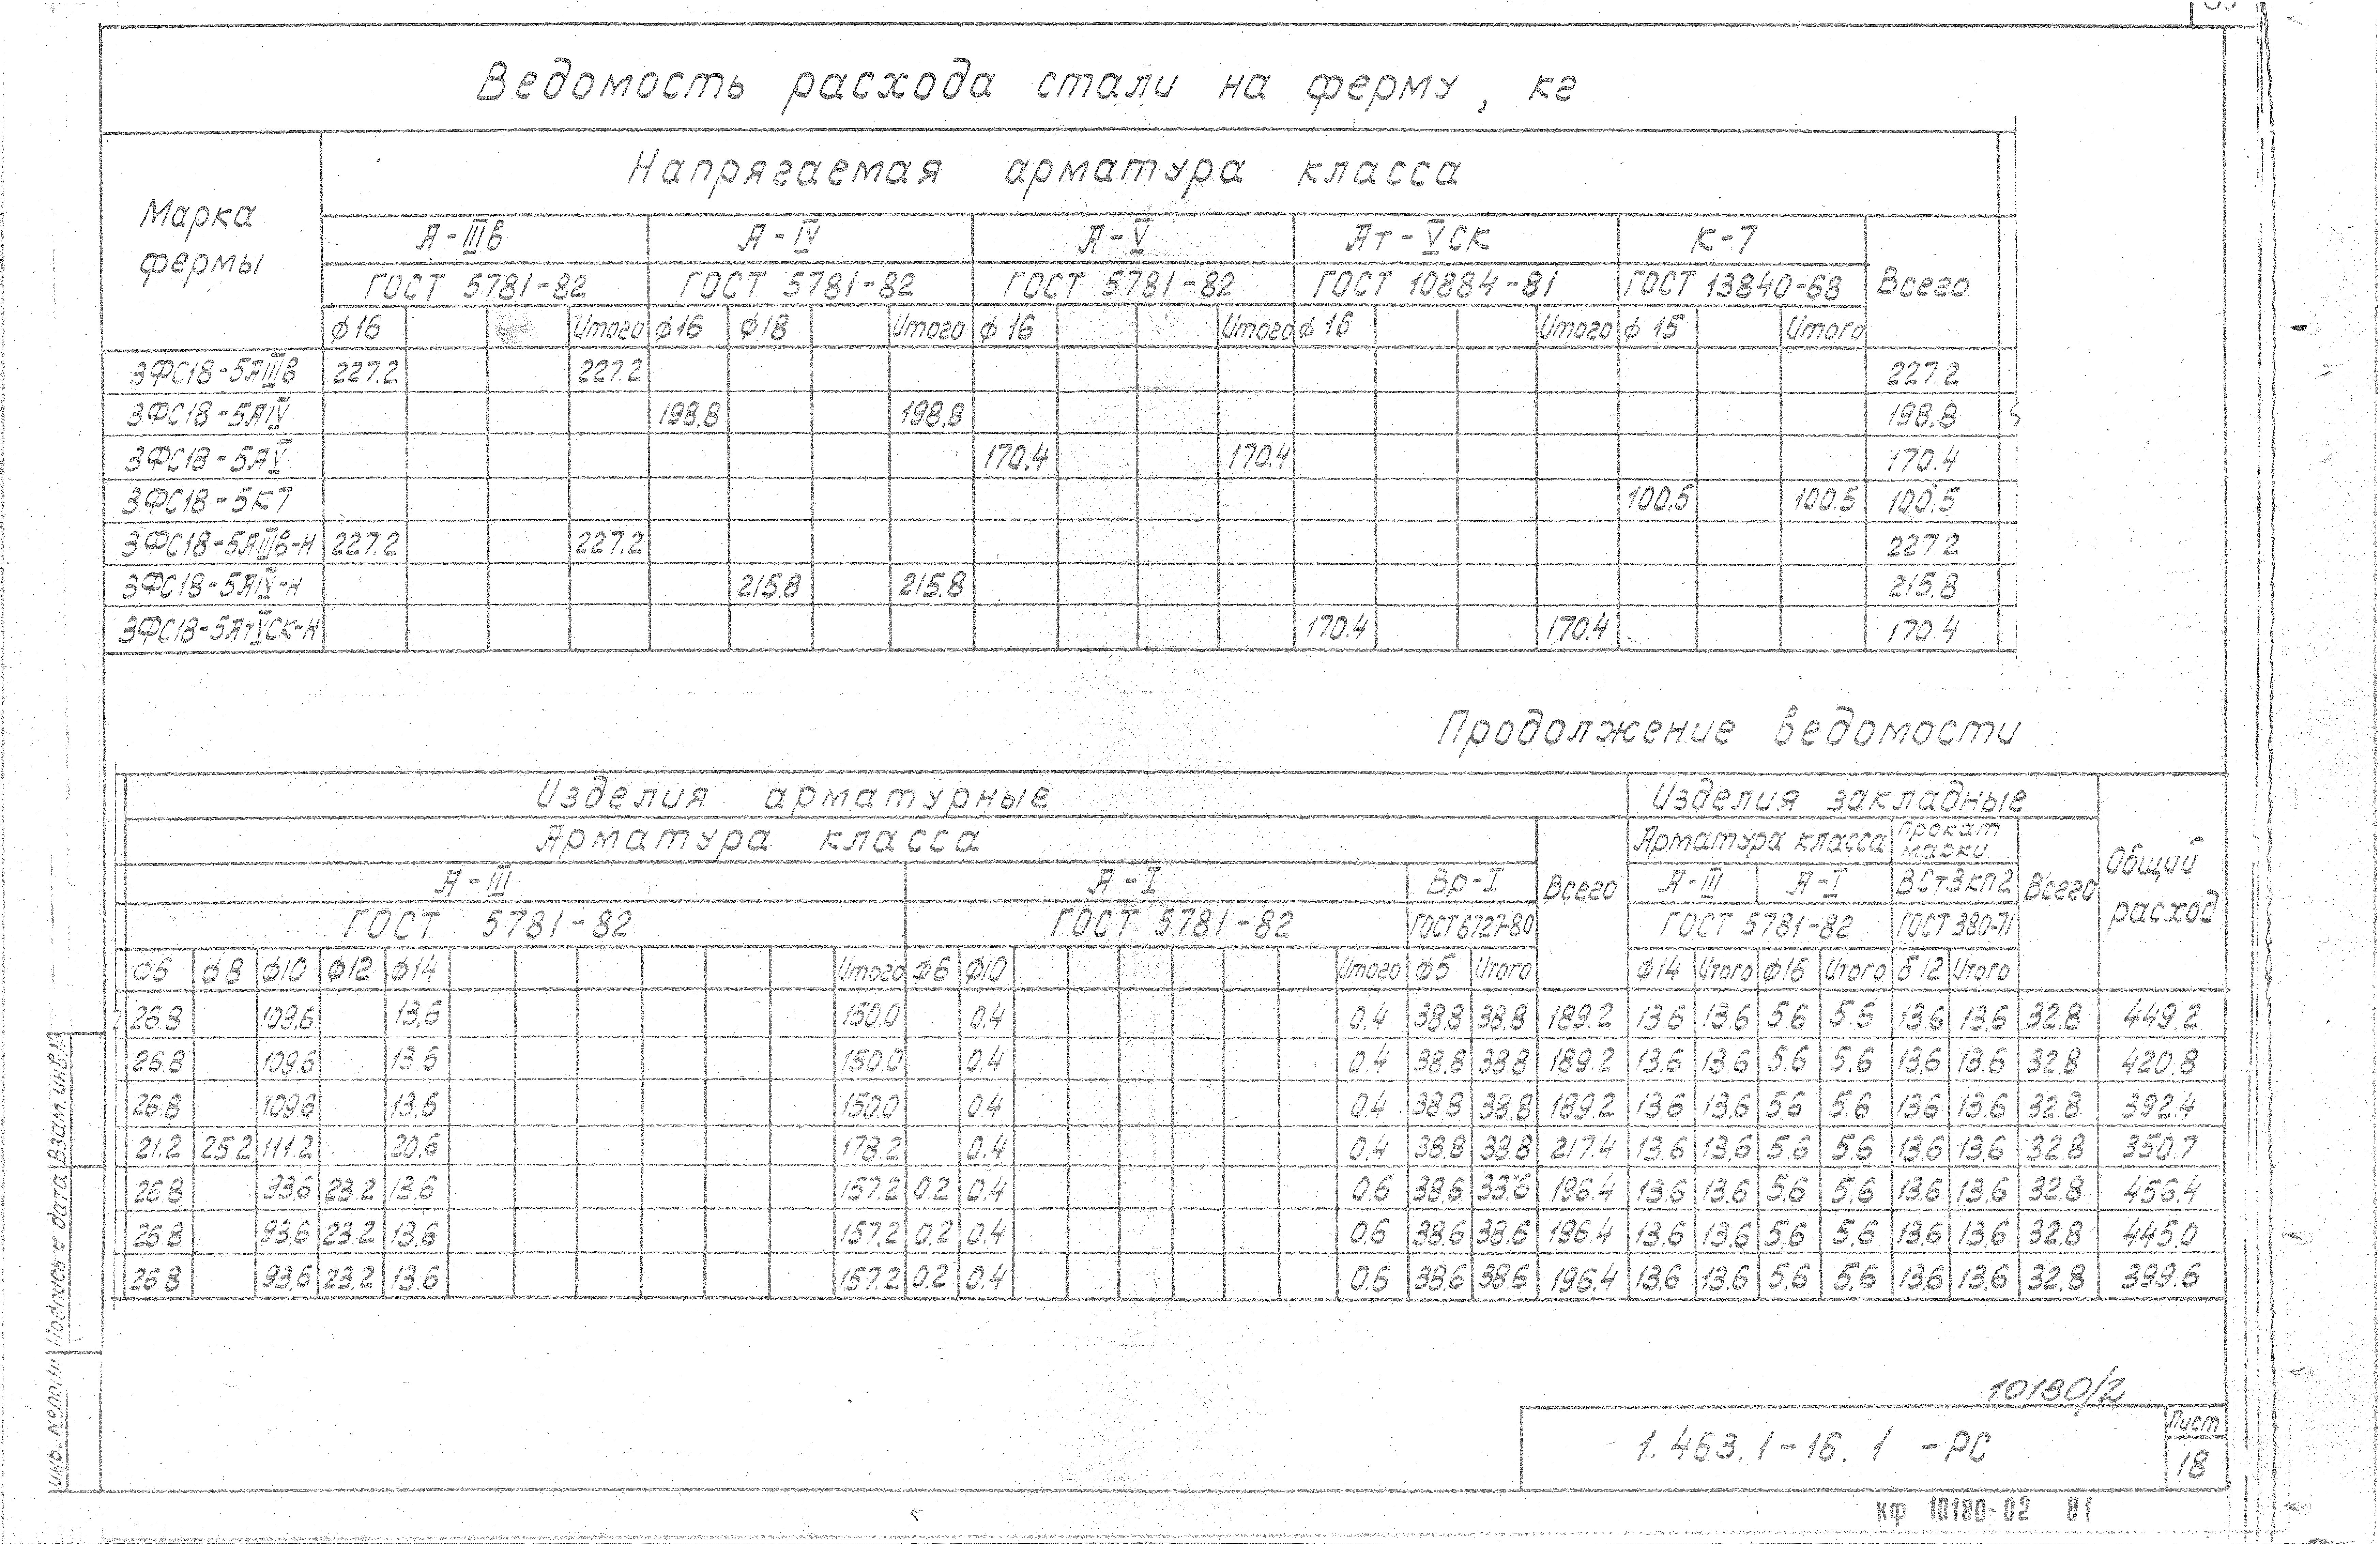 Ведомость расхода стали на ферму, кг
Марка фермы
Напрягаемая арматура класса
А-IIIв А-IV А-V Ат-VСК К-7 Всего
ГОСТ 5781-82 ГОСТ 5781-82 ГОСТ 5781-82 ГОСТ 10884-81 ГОСТ 13840-68
ф16 Итого ф16 ф18 Итого ф16 Итого ф16 Итого ф15 Итого
3ФС18-5АIIIв 227.2 227.2 227.2
3ФС18-5АIV 198.8 198.8 198.8
3ФС18-5АV 170.4 170.4 170.4
3ФС18-5К7 100.5 100.5 100.5
3ФС18-5АIIIв-Н 227.2 227.2 227.2
3ФС18-5АIV-Н 215.8 215.8 215.8
3ФС18-5АтVСК-Н 170.4 170.4 170.4
Продолжение ведомости
Изделия арматурные Изделия закладные Общий расход
Арматура класса Всего Арматура класса Прокат марки Всего
А-III А-I Вр-I А-III А-I ВСт3кп2
ГОСТ 5781-82 ГОСТ 5781-82 ГОСТ 6727-80 ГОСТ 5781-82 ГОСТ 380-71
ф6 ф8 ф10 ф12 ф14 Итого ф6 ф10 Итого ф5 Итого ф14 Итого ф16 Итого δ12 Итого
26.8 109.6 13.6 150.0 0.4 0.4 38.8 38.8 189.2 13.6 13.6 5.6 5.6 13.6 13.6 32.8 449.2
26.8 109.6 13.6 150.0 0.4 0.4 38.8 38.8 189.2 13.6 13.6 5.6 5.6 13.6 13.6 32.8 420.8
26.8 109.6 13.6 150.0 0.4 0.4 38.8 38.8 189.2 13.6 13.6 5.6 5.6 13.6 13.6 32.8 392.4
21.2 25.2 111.2 20.6 178.2 0.4 0.4 38.8 38.8 217.4 13.6 13.6 5.6 5.6 13.6 13.6 32.8 350.7
26.8 93.6 23.2 13.6 157.2 0.2 0.4 0.6 38.6 38.6 196.4 13.6 13.6 5.6 5.6 13.6 13.6 32.8 456.4
26.8 93.6 23.2 13.6 157.2 0.2 0.4 0.6 38.6 38.6 196.4 13.6 13.6 5.6 5.6 13.6 13.6 32.8 445.0
26.8 93.6 23.2 13.6 157.2 0.2 0.4 0.6 38.6 38.6 196.4 13.6 13.6 5.6 5.6 13.6 13.6 32.8 399.6
Взам. инв.№
Подпись и дата
Инв. №подл
10180/2
1.463.1-16.1 -РС
Лист
18
КФ 10180-02 81